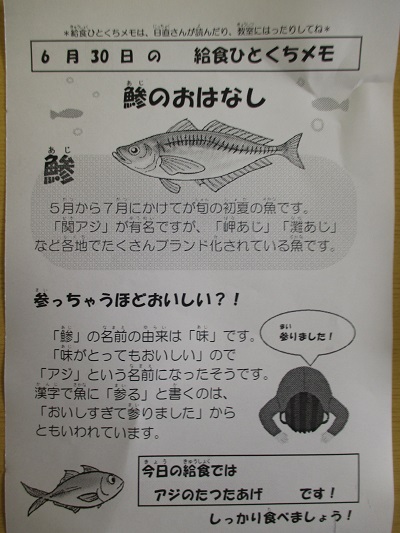 ＊給食ひとくちメモは、日直さんが読んだり、教室にはったりしてね＊
6 月 30 日 の 給食ひとくちメモ
鯵のおはなし
鯵
５月から７月にかけてが旬の初夏の魚です。
「関アジ」が有名ですが、「岬あじ」「灘あじ」
など各地でたくさんブランド化されている魚です。
参っちゃうほどおいしい？！
「鯵」の名前の由来は「味」です。
「味がとってもおいしい」ので
「アジ」という名前になったそうです。
漢字で魚に「参る」と書くのは、
「おいしすぎて参りました」から
ともいわれています。
参りました！
今日の給食では
アジのたつたあげ です！
しっかり食べましょう！